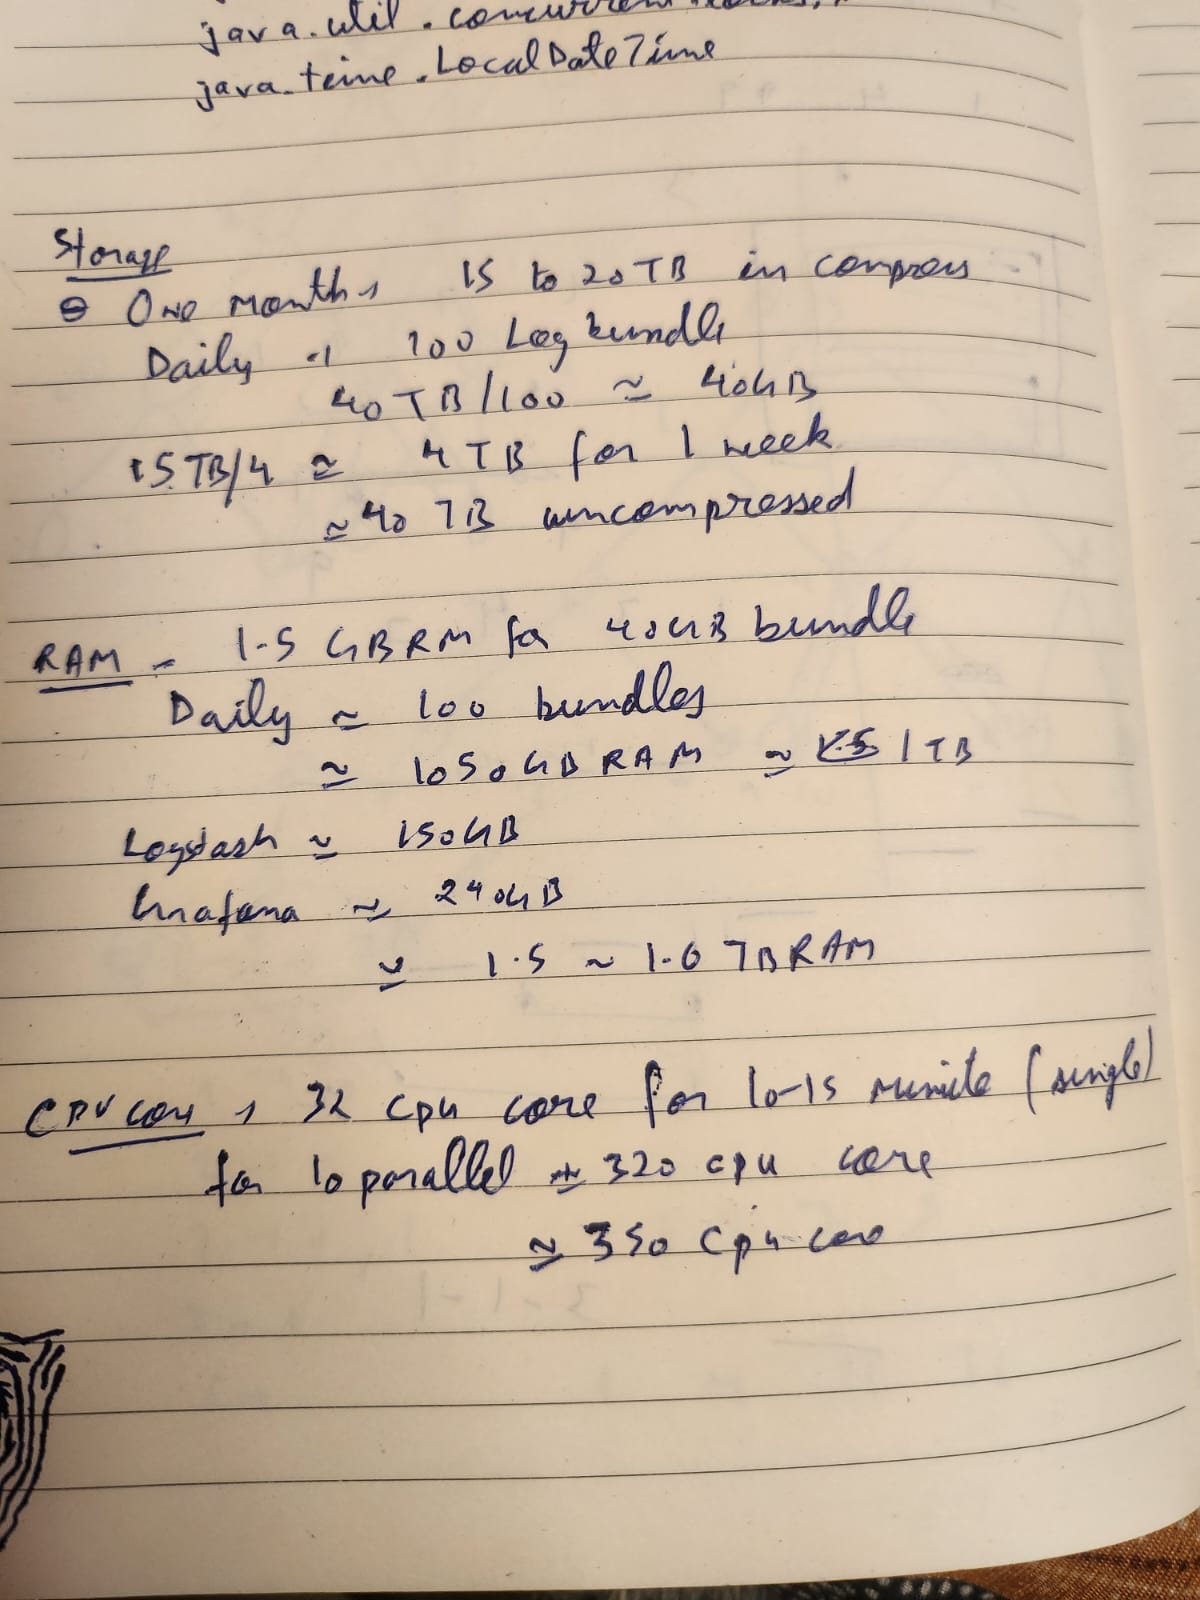 java.util.concurrent
java.time.LocalDateTime
Storage
One month 15 to 20 TB in compress
Daily 100 Log bundle
40 TB/100 ≃ 40GB
15TB/4 ≃ 4 TB for 1 week
≃ 40 TB uncompressed
RAM - 1.5 GB RM for 40GB bundle
Daily ≃ 100 bundles
≃ 1050GB RAM ≃ 1 TB
Logstash ≃ 150GB
Grafana ≃ 240GB
≃ 1.5 ~ 1.6 TB RAM
CPU core 32 cpu core for 10-15 minute (single)
for 10 parallel ≃ 320 cpu core
≃ 350 cpu core